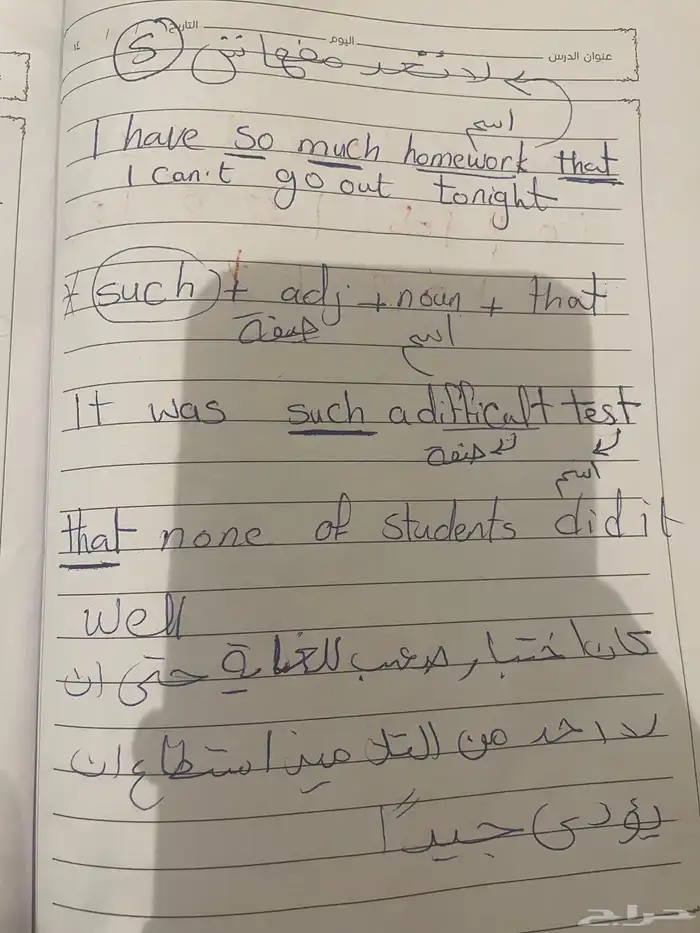 التاريخ / / ١٤
اليوم
عنوان الدرس
لا تعد مفهاش S
اسم
I have so much homework that
I can't go out tonight
* such + adj + noun + that
صفة
اسم
It was such a difficult test
صفة
اسم
that none of students did it
well
كان اختبار صعب للغاية حتى ان
لا احد من التلاميذ استطاع ان
يؤدي جيداً
حراج